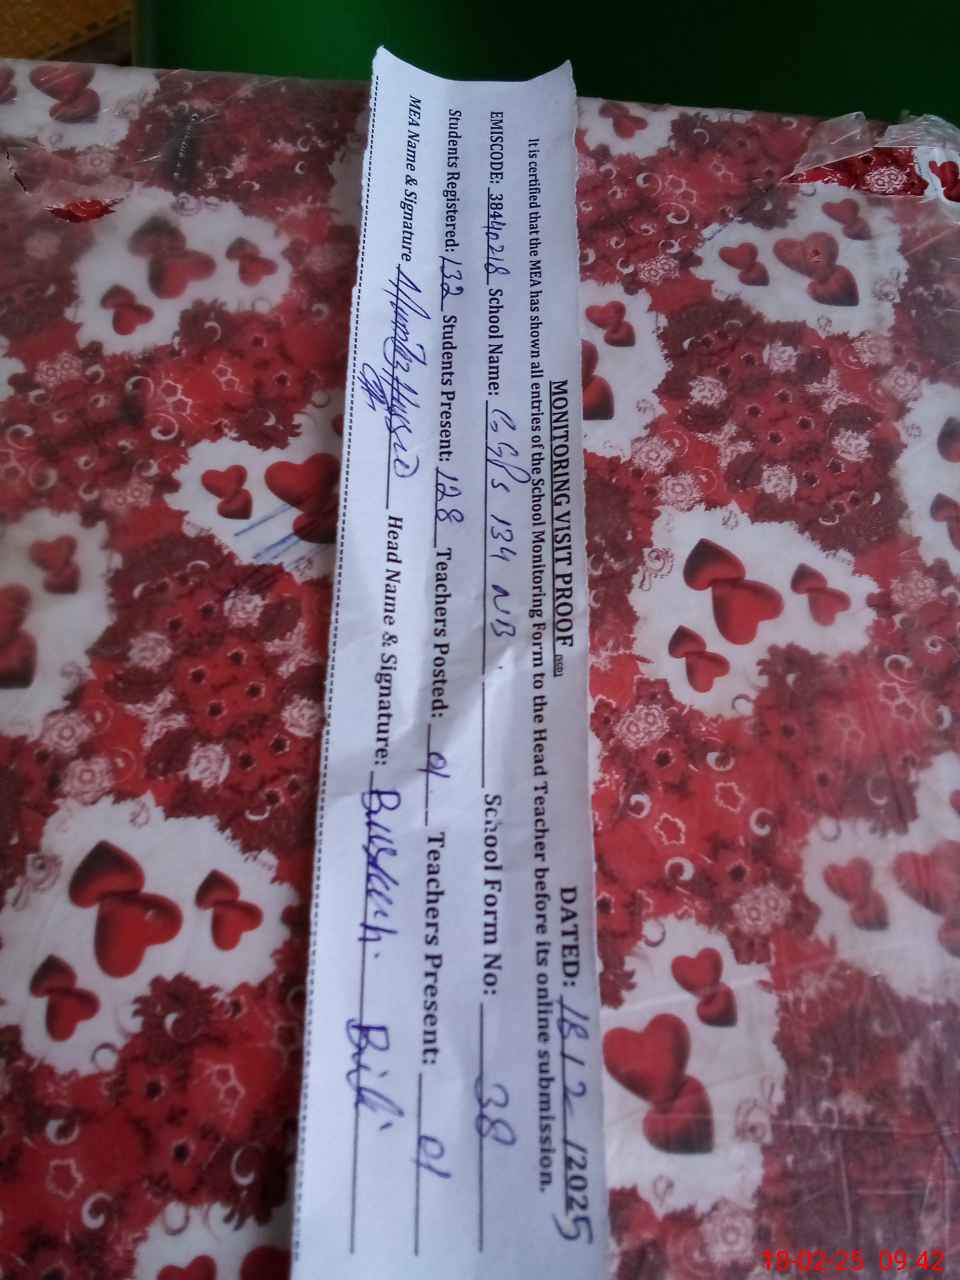 MONITORING VISIT PROOF DATED: 18/2/2025
It is certified that the MEA has shown all entries of the School Monitoring Form to the Head Teacher before its online submission.
EMISCODE: School Name: GGPS 134 NB. School Form No: 38
Students Registered: 132 Students Present: 128 Teachers Posted: 01 Teachers Present: 01
MEA Name & Signature Head Name & Signature: Bushrah. Bibi
18-02-25 09:42